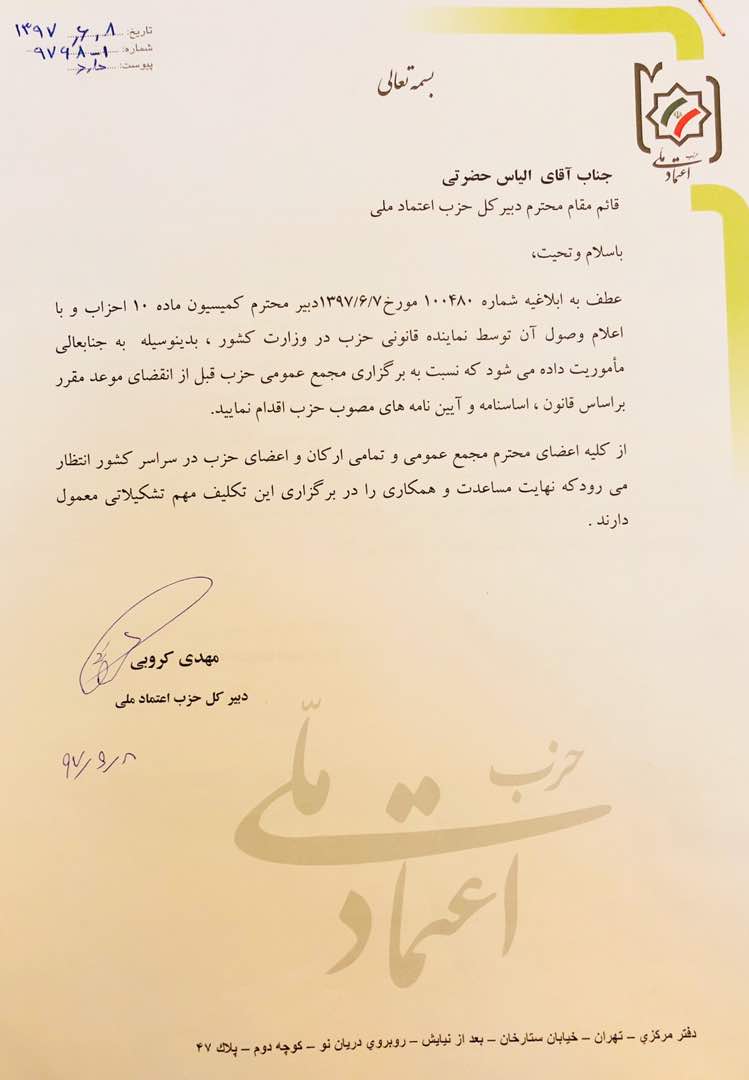 تاریخ: ۱۳۹۷,۶,۸
شماره: ۹۷۶۸-۱
پیوست: دارد
بسمه تعالی
حزب
اعتماد ملّی
جناب آقای الیاس حضرتی
قائم مقام محترم دبیرکل حزب اعتماد ملی
باسلام وتحیت،
عطف به ابلاغیه شماره ۱۰۰۴۸۰ مورخ۱۳۹۷/۶/۷دبیر محترم کمیسیون ماده ۱۰ احزاب و با
اعلام وصول آن توسط نماینده قانونی حزب در وزارت کشور ، بدینوسیله به جنابعالی
مأموریت داده می شود که نسبت به برگزاری مجمع عمومی حزب قبل از انقضای موعد مقرر
براساس قانون ، اساسنامه و آیین نامه های مصوب حزب اقدام نمایید.
از کلیه اعضای محترم مجمع عمومی و تمامی ارکان و اعضای حزب در سراسر کشور انتظار
می رودکه نهایت مساعدت و همکاری را در برگزاری این تکلیف مهم تشکیلاتی معمول
دارند .
مهدی کروبی
دبیر کل حزب اعتماد ملی
۹۷/۶/۸
حزب
اعتماد ملّی
دفتر مرکزي – تهران – خیابان ستارخان – بعد از نیایش – روبروي دریان نو – کوچه دوم – پلاك ۴۷